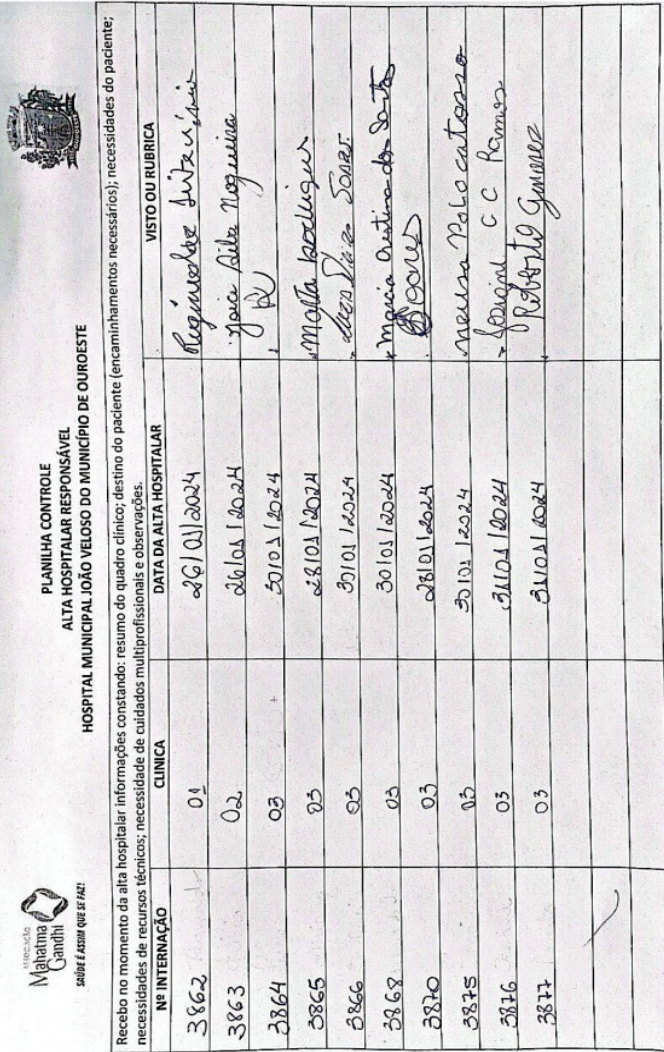 Mahatma
Gandhi
SAÚDE É ASSIM QUE SE FAZ!
PLANILHA CONTROLE
ALTA HOSPITALAR RESPONSÁVEL
HOSPITAL MUNICIPAL JOÃO VELOSO DO MUNICÍPIO DE OUROESTE
Recebo no momento da alta hospitalar informações constando: resumo do quadro clínico; destino do paciente (encaminhamentos necessários); necessidades do paciente;
necessidades de recursos técnicos; necessidade de cuidados multiprofissionais e observações.
Nº INTERNAÇÃO CLINICA DATA DA ALTA HOSPITALAR VISTO OU RUBRICA
3862 01 26/01/2024
3863 02 26/01/2024 Nogueira
3864 03 30/01/2024
3865 03 28/01/2024 Marta Rodrigues
3866 03 30/01/2024 Soares
3868 03 30/01/2024 Marcia Cristina dos Santos
3870 03 28/01/2024 Soares
3875 03 30/01/2024 Neusa Polo Catosso
3876 03 31/01/2024 Josiani C C Ramos
3877 03 31/01/2024 Roberto Gimenez